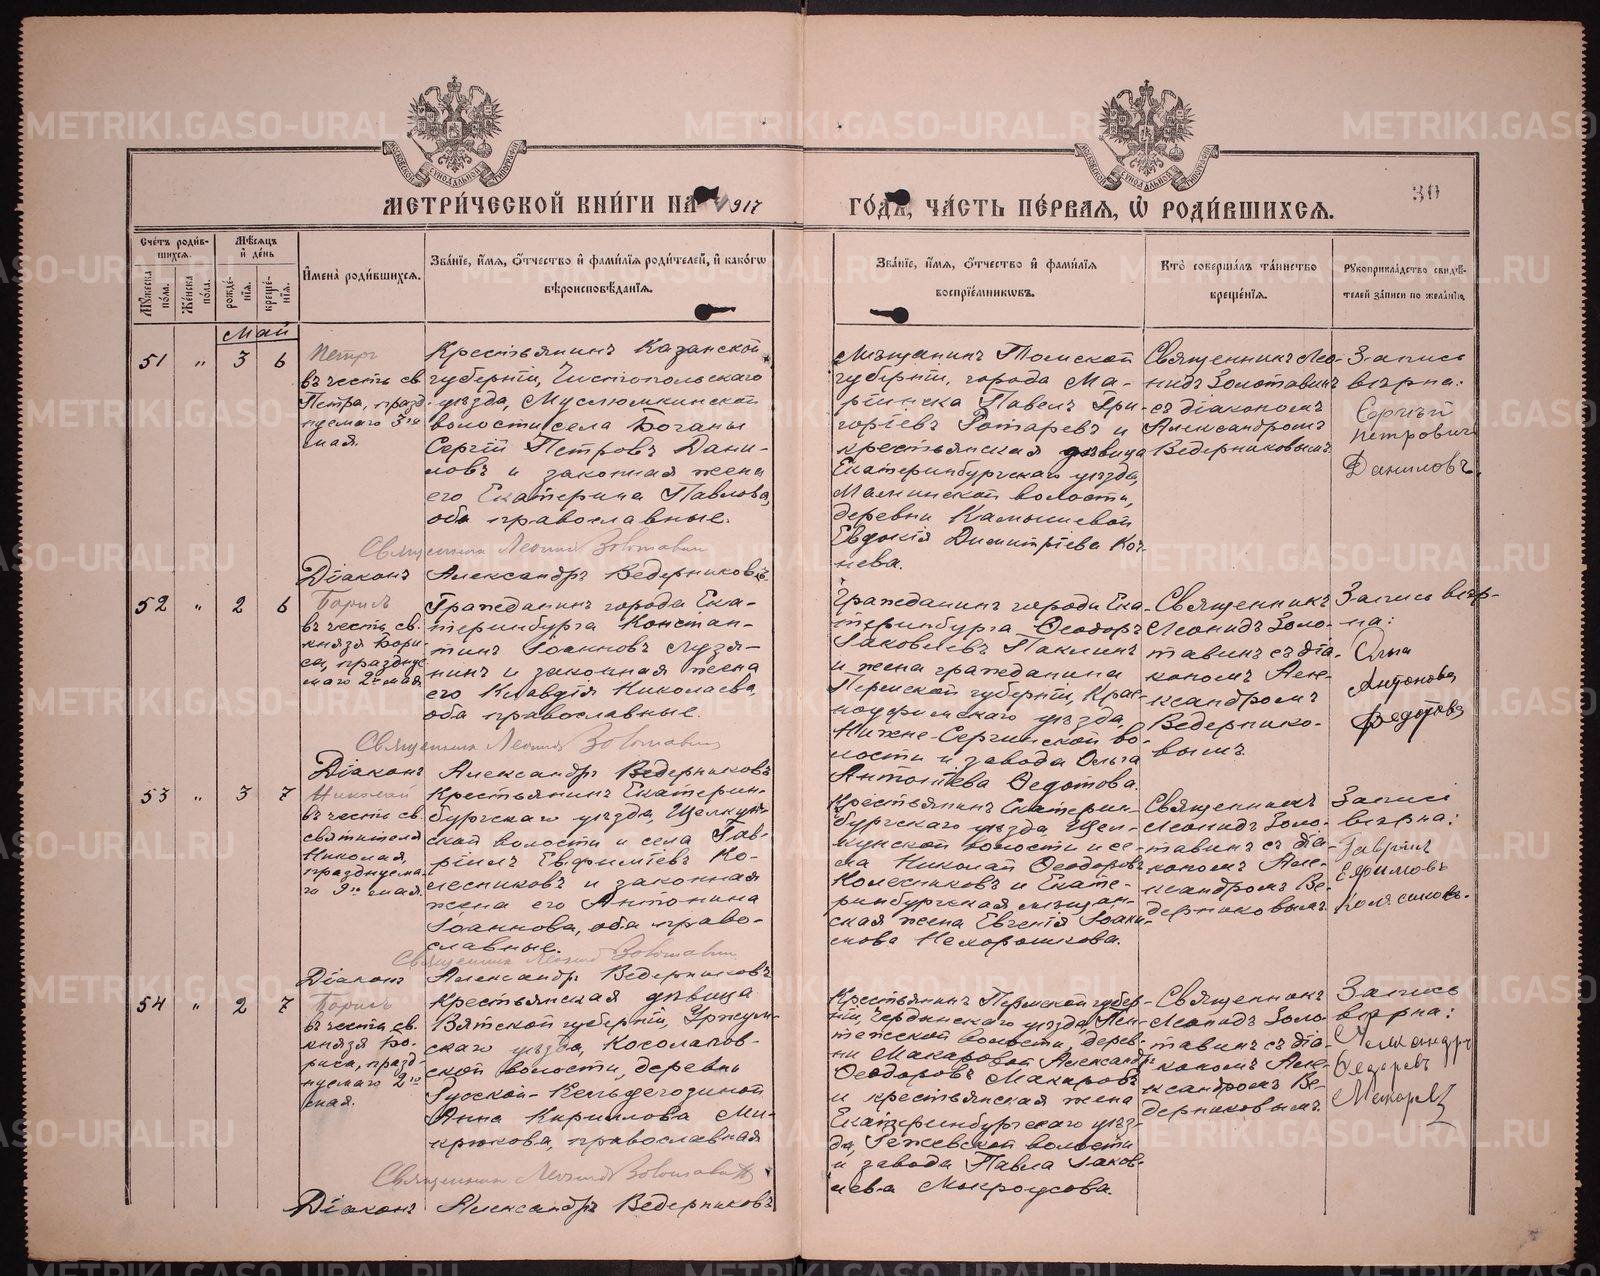 МЕТРИ́ЧЕСКОЙ КНИ́ГИ НА 1917
ГО́ДЪ, ЧА́СТЬ ПЕ́РВАЯ, Ѡ РОДИ́ВШИХСЯ.
30
Сче́тъ роди́в-
шихся.
Му́жеска по́ла.
Же́нска по́ла.
Мѣ́сяцъ и де́нь
рожде́-
нія.
креще́-
нія.
Имена̀ роди́вшихся.
Зва́ніе, и́мя, о́тчество и фами́лія роди́телей, и како́гѡ
вѣроисповѣ́данія.
Зва́ніе, и́мя, о́тчество и фами́лія
воспріе́мникѡвъ.
Кто̀ соверша́лъ та́инство
креще́нія.
Рукоприкла́дство свидѣ́-
телей за́писи по жела́нію.
Май
51 " 3 6
Петръ
въ честь св.
Петра, празд-
нуемаго 3го
мая.
Крестьянинъ Казанской
губерніи, Чистопольскаго
уѣзда, Муслюмкинской
волости села Боганы
Сергій Петровъ Дани-
ловъ и законная жена
его Екатерина Павлова,
оба православные.
Священникъ Леонидъ Золотавинъ
Діаконъ Александръ Ведерниковъ.
Мѣщанинъ Томской
губерніи, города Ма-
ріинска Павелъ Гри-
горіевъ Ротаревъ и
крестьянская дѣвица
Екатеринбургскаго уѣзда,
волости,
деревни Камышевой
Евдокія Димитріева Коч-
нева.
Священникъ Лео-
нидъ Золотавинъ
съ діакономъ
Александромъ
Ведерниковымъ.
Запись
вѣрна:
Сергѣй
Петровичъ
Даниловъ.
52 " 2 6
Борисъ
въ честь св.
князя Бори-
са, праздну-
емаго 2го мая
Гражданинъ города Ека-
теринбурга Констан-
тинъ Іоанновъ Лузя-
нинъ и законная жена
его Клавдія Николаева,
оба православные.
Священникъ Леонидъ Золотавинъ
Діаконъ Александръ Ведерниковъ
Гражданинъ города Ека-
теринбурга Ѳеодоръ
Іаковлевъ Паклинъ
и жена гражданина
Пермской губерніи, Крас-
ноуфимскаго уѣзда,
Нижне-Сергинской во-
лости и завода Ольга
Антоніева Ѳедотова.
Священникъ
Леонидъ Золо-
тавинъ съ діа-
кономъ Але-
ксандромъ
Ведернико-
вымъ.
Запись вѣр-
на:
Ольга
Антонова
Федотова
53 " 3 7
Николай
въ честь св.
святителя
Николая,
празднуема-
го 9го мая.
Крестьянинъ Екатерин-
бургскаго уѣзда, Щелкун-
ской волости и села Гав-
ріилъ Евфиміевъ Ко-
лесниковъ и законная
жена его Антонина
Іоаннова, оба право-
славные.
Священникъ Леонидъ Золотавинъ
Діаконъ Александръ Ведерниковъ
Крестьянинъ Екатерин-
бургскаго уѣзда, Щел-
кунской волости и се-
ла Николай Ѳеодоровъ
Колесниковъ и Екате-
ринбургская мѣщан-
ская жена Евгенія Іоаки-
мова Нехорошкова.
Священникъ
Леонидъ Золо-
тавинъ съ діа-
кономъ Але-
ксандромъ Ве-
дерниковымъ.
Запись
вѣрна:
Гавріилъ
Ефимовъ
54 " 2 7
Борисъ
въ честь св.
князя Бо-
риса, празд-
нуемаго 2го
мая.
Крестьянская дѣвица
Вятской губерніи, Уржум-
скаго уѣзда, Косолапов-
ской волости, деревни
Русской-
Анна Кириллова Ми-
крюкова, православная
Священникъ Леонидъ Золотавинъ
Діаконъ Александръ Ведерниковъ
Крестьянинъ Пермской губер-
ніи, Чердынскаго уѣзда, Пян-
тежской волости, дерев-
ни Макаровой Александръ
Ѳеодоровъ Макаровъ
и крестьянская жена
Екатеринбургскаго уѣз-
да, Режевской волости
и завода Павла Іаков-
лева Мокроусова.
Священникъ
Леонидъ Золо-
тавинъ съ діа-
кономъ Але-
ксандромъ Ве-
дерниковымъ.
Запись
вѣрна:
Александръ
Макаровъ
METRIKI.GASO-URAL.RU